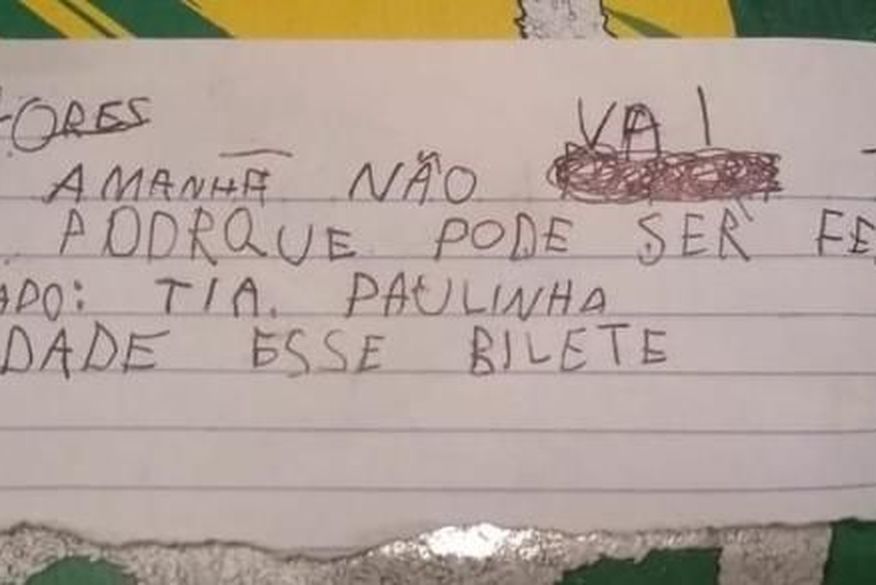 ORES
VAI
AMANHÃ NÃO
PODRQUE PODE SER FE
ADO: TIA. PAULINHA
DADE ESSE BILETE